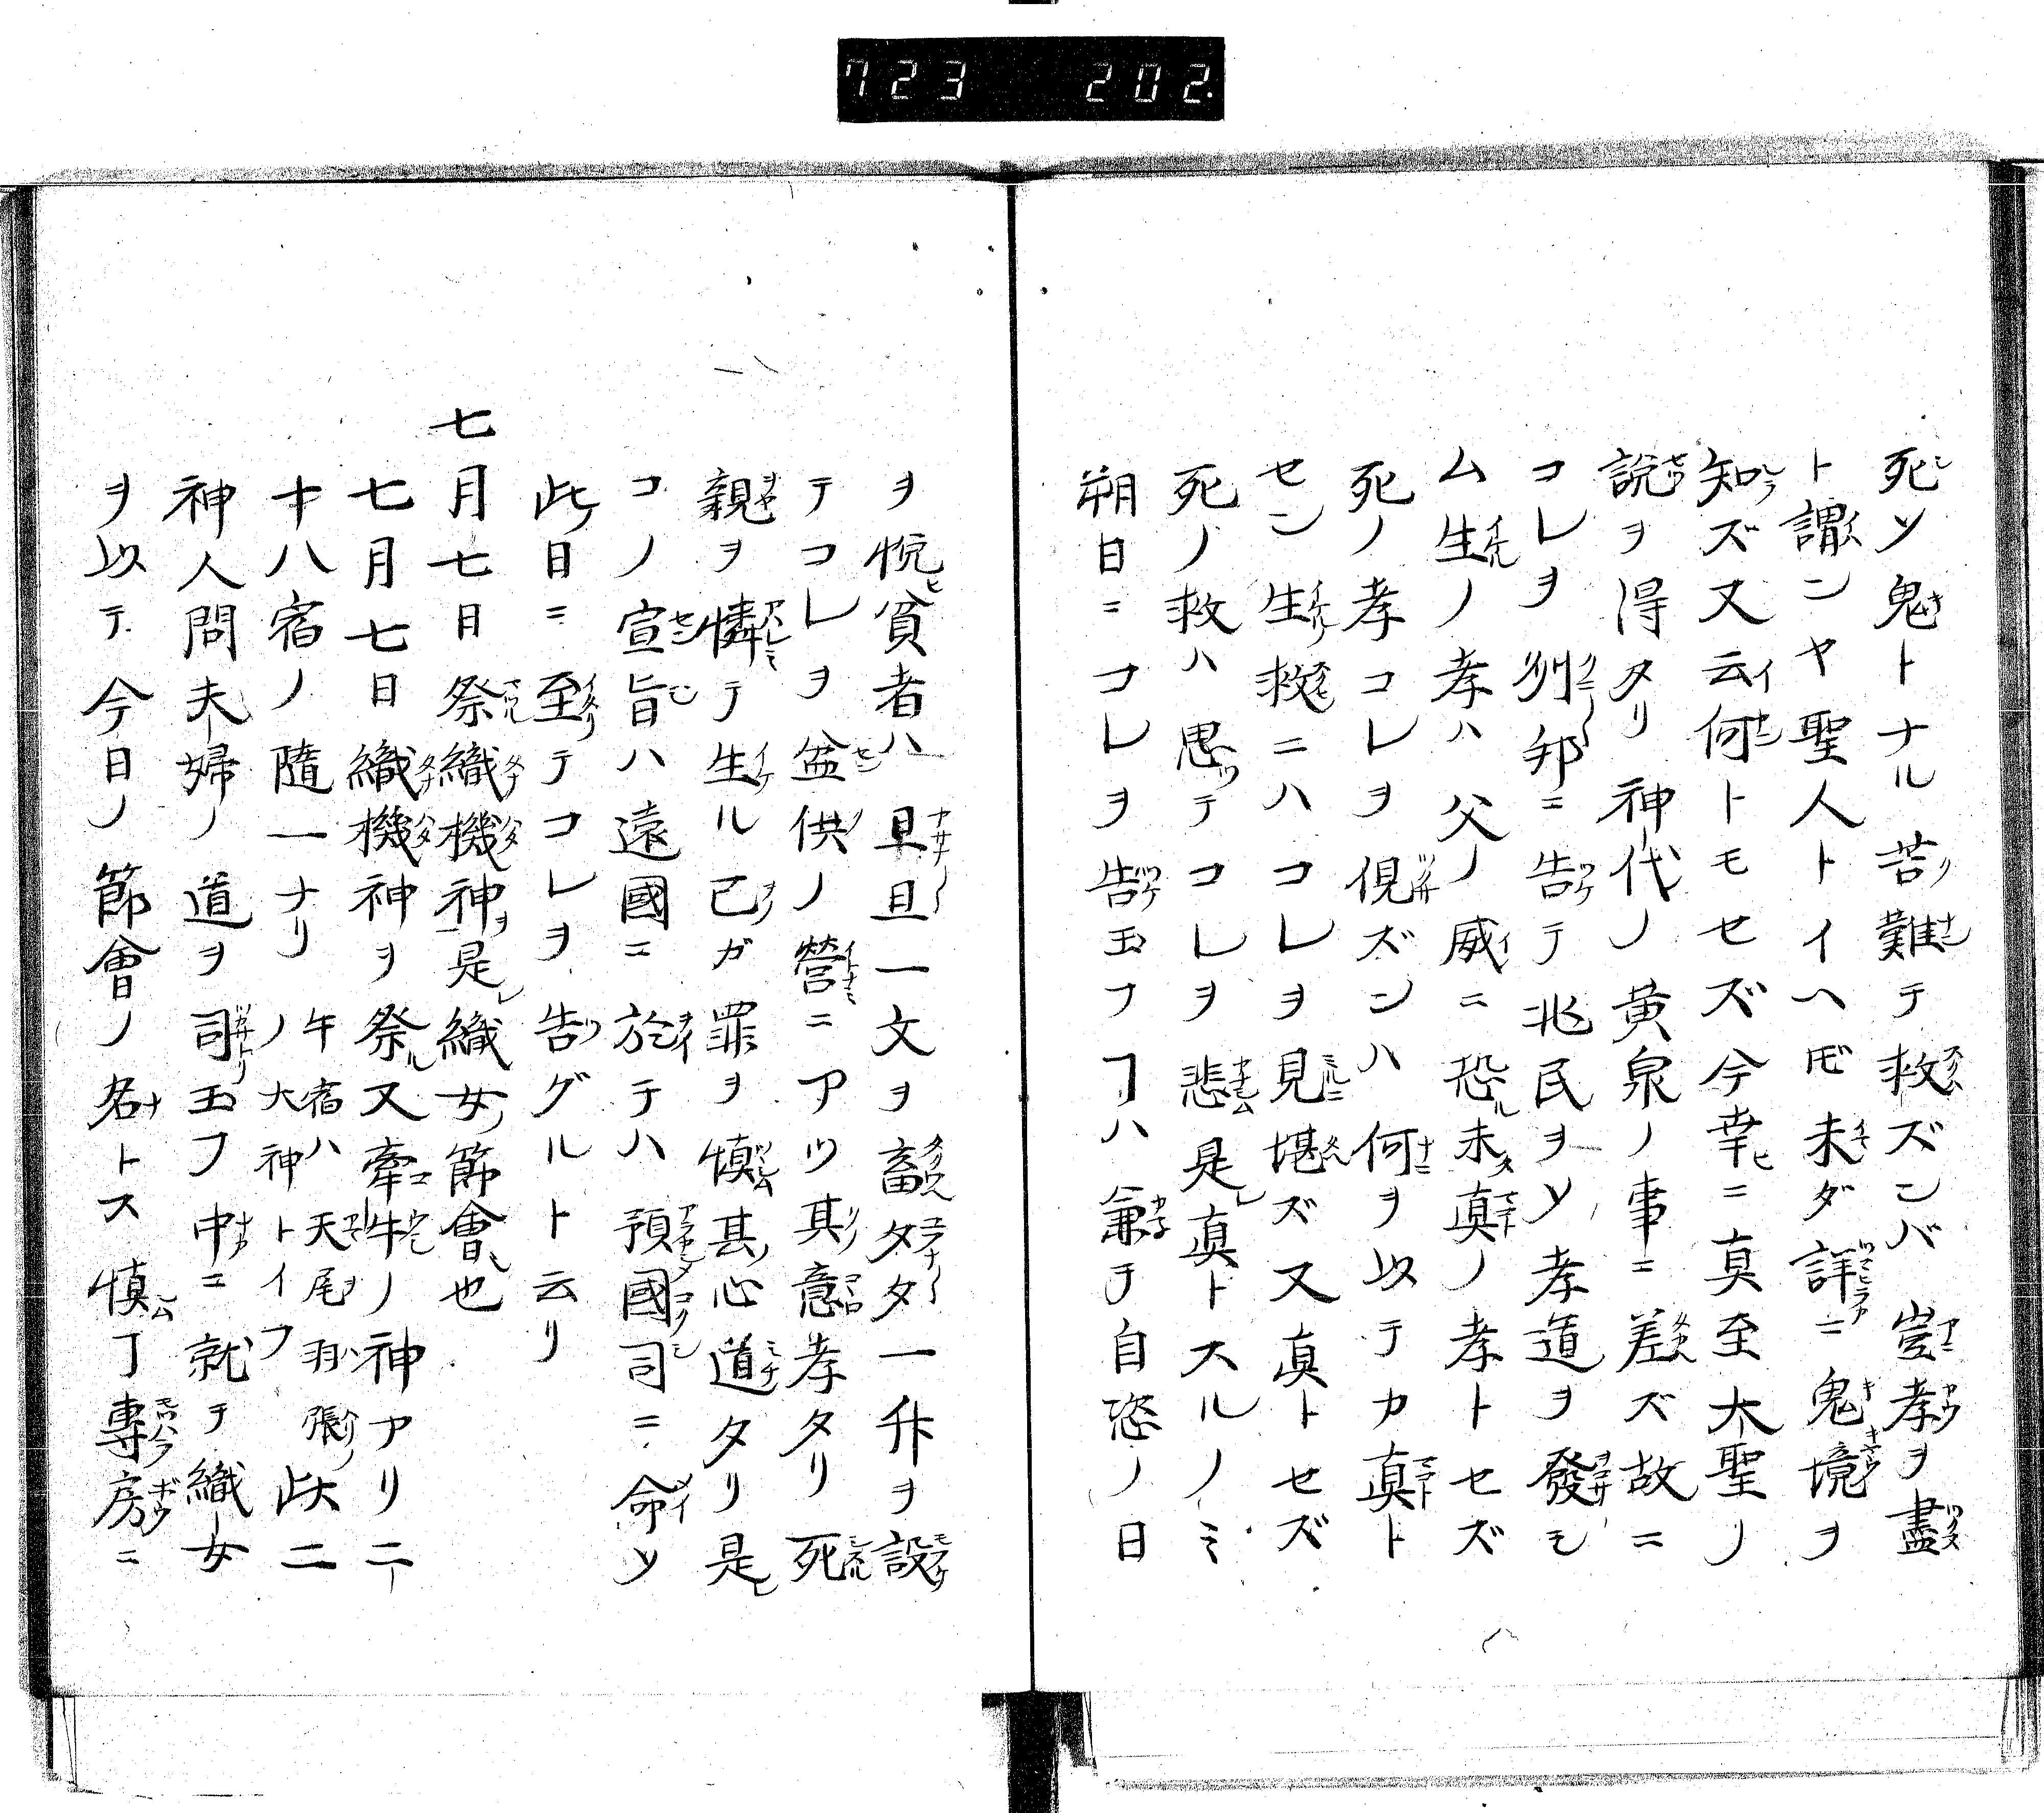 723 202.
死ソ鬼トナル苦難テ救ズンバ豈孝ヲ盡
ト謂ンヤ聖人トイヘ𪜈未ダ詳ニ鬼境ヲ
知ズ又云何トモセズ今幸ニ真至大聖ノ
説ヲ得タリ神代ノ黄泉ノ事ニ差ズ故ニ
コレヲ列邦ニ告テ兆民ヲソ孝道ヲ發モ
ム生ノ孝ハ父ノ威ニ恐未真ノ孝トセズ
死ノ孝コレヲ俔ズンハ何ヲ以テカ真ト
セン生救ニハコレヲ見堪ズ又真トセズ
死ノ救ハ思テコレヲ悲是真トスルノミ
朔日ニコレヲ告玉フヿハ兼テ自恣ノ日
ヲ悦貧者ハ旦旦一文ヲ畜夕夕一升ヲ設
テコレヲ盆供ノ營ニアツ其意孝タリ死
親ヲ憐テ生ル己ガ罪ヲ慎其心道タリ是
コノ宣旨ハ遠國ニ於テハ預國司ニ命ソ
此日ニ至テコレヲ告グルト云リ
七月七日祭織機神是織女節會也
七月七日織機神ヲ祭又牽牛ノ神アリ二
十八宿ノ隨一ナリ 牛宿ハ天尾羽張ノ大神トイフ 此二
神人間夫婦ノ道ヲ司玉フ中ニ就テ織女
ヲ以テ今日ノ節會ノ名トス慎丁專房ニ